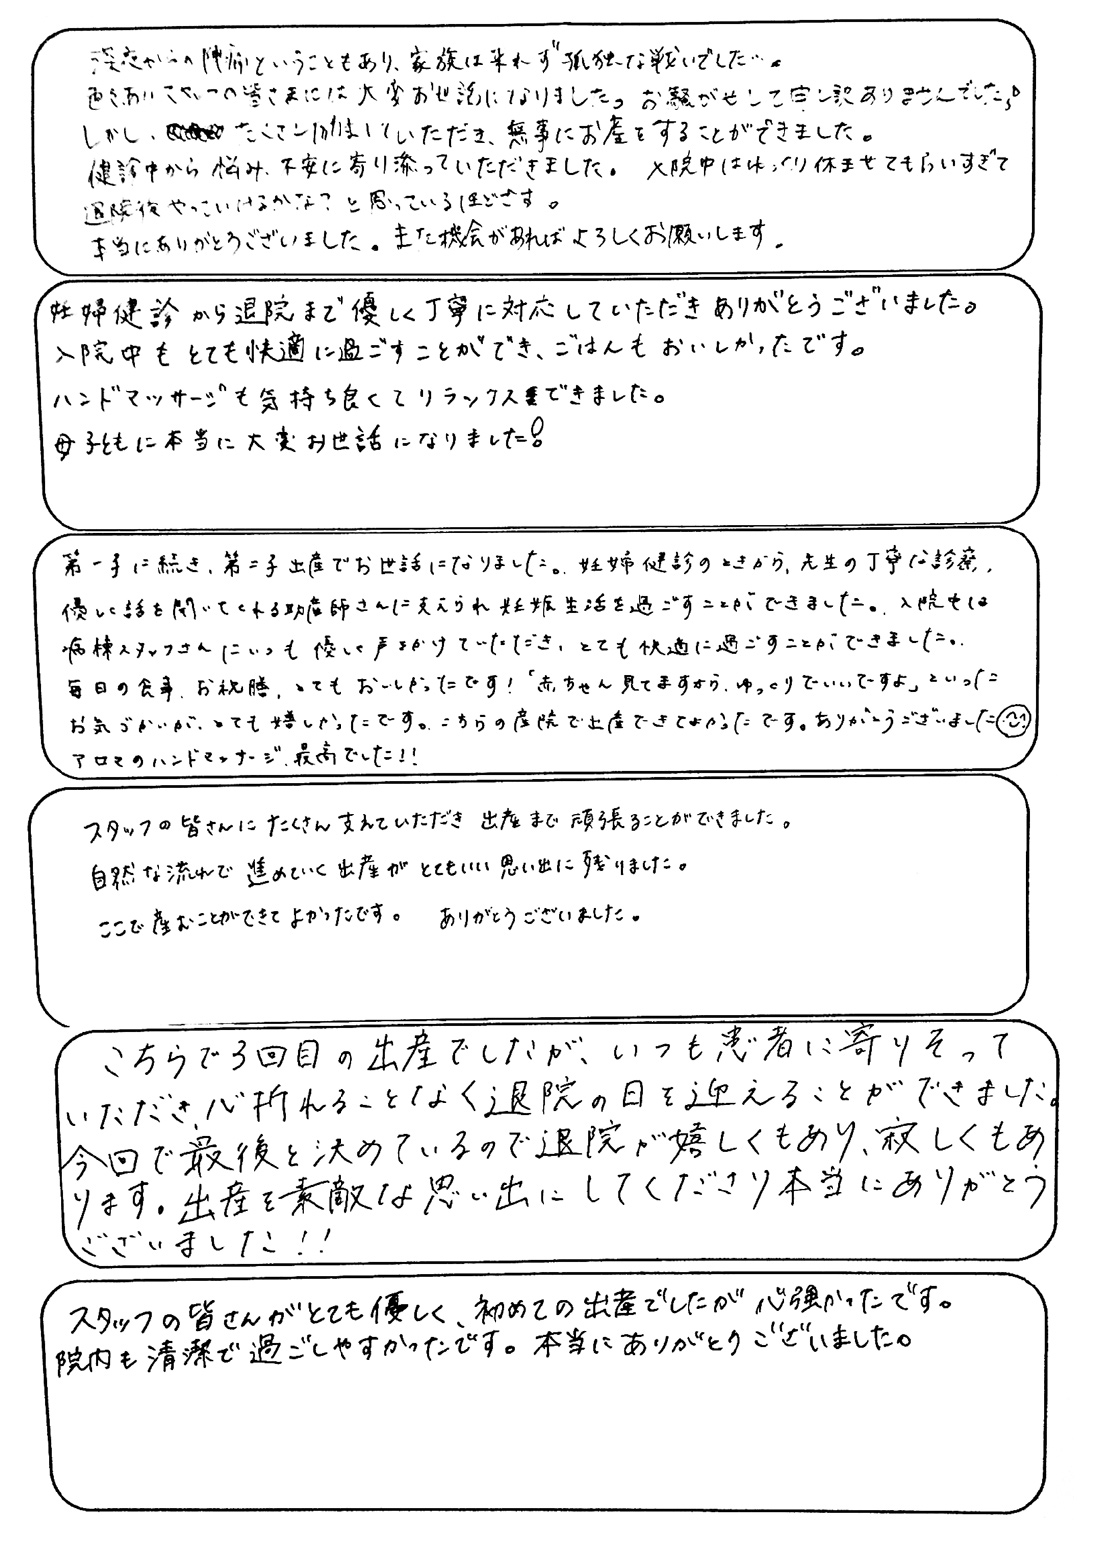 深夜からの陣痛ということもあり、家族は来れず孤独な戦いでした…。
皆さまには大変お世話になりました。お騒がせして申し訳ありませんでした。
しかし、たくさん励ましていただき、無事にお産をすることができました。
健診中から悩み、不安に寄り添っていただきました。 入院中はゆっくり休ませてもらいすぎて
退院後やっていけるかな?と思っているほどです。
本当にありがとうございました。また機会があればよろしくお願いします。
妊婦健診から退院まで優しく丁寧に対応していただきありがとうございました。
入院中もとても快適に過ごすことができ、ごはんもおいしかったです。
ハンドマッサージも気持ち良くてリラックスできました。
母子ともに本当に大変お世話になりました!
第一子に続き、第二子出産でお世話になりました。妊婦健診のときから、先生の丁寧な診察、
優しく話を聞いてくれる助産師さんに支えられ妊娠生活を過ごすことができました。入院中は
病棟スタッフさんにいつも優しく声をかけていただき、とても快適に過ごすことができました。
毎日の食事、お祝膳、とてもおいしかったです!「赤ちゃん見てますから、ゆっくりでいいですよ」といった
お気づかいが、とても嬉しかったです。こちらの産院で出産できてよかったです。ありがとうございました
アロマのハンドマッサージ、最高でした!!
スタッフの皆さんにたくさん支えていただき 出産まで頑張ることができました。
自然な流れで進めていく出産がとてもいい思い出に残りました。
ここで産むことができてよかったです。 ありがとうございました。
こちらで3回目の出産でしたが、いつも患者に寄りそって
いただき、心折れることなく退院の日を迎えることができました。
今回で最後と決めているので退院が嬉しくもあり、寂しくもあ
ります。出産を素敵な思い出にしてくださり本当にありがとう
ございました!!
スタッフの皆さんがとても優しく、初めての出産でしたが心強かったです。
院内も清潔で過ごしやすかったです。本当にありがとうございました。